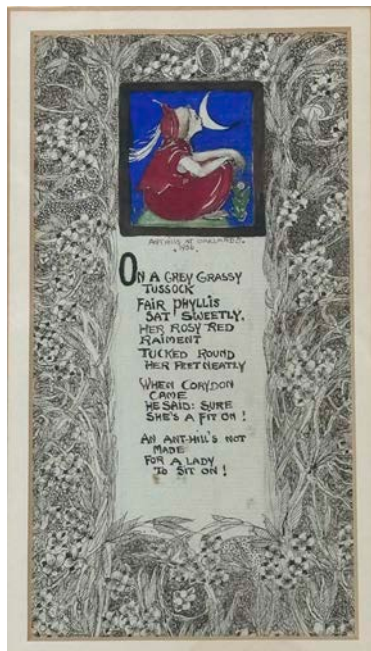 ANTHILLS AT OAKLANDS.
1936.
ON A GREY GRASSY
TUSSOCK
FAIR PHYLLIS
SAT SWEETLY,
HER ROSY RED
RAIMENT
TUCKED ROUND
HER FEET NEATLY
WHEN CORYDON
CAME
HE SAID: SURE
SHE'S A FIT ON!
AN ANT-HILL'S NOT
MADE
FOR A LADY
TO SIT ON!